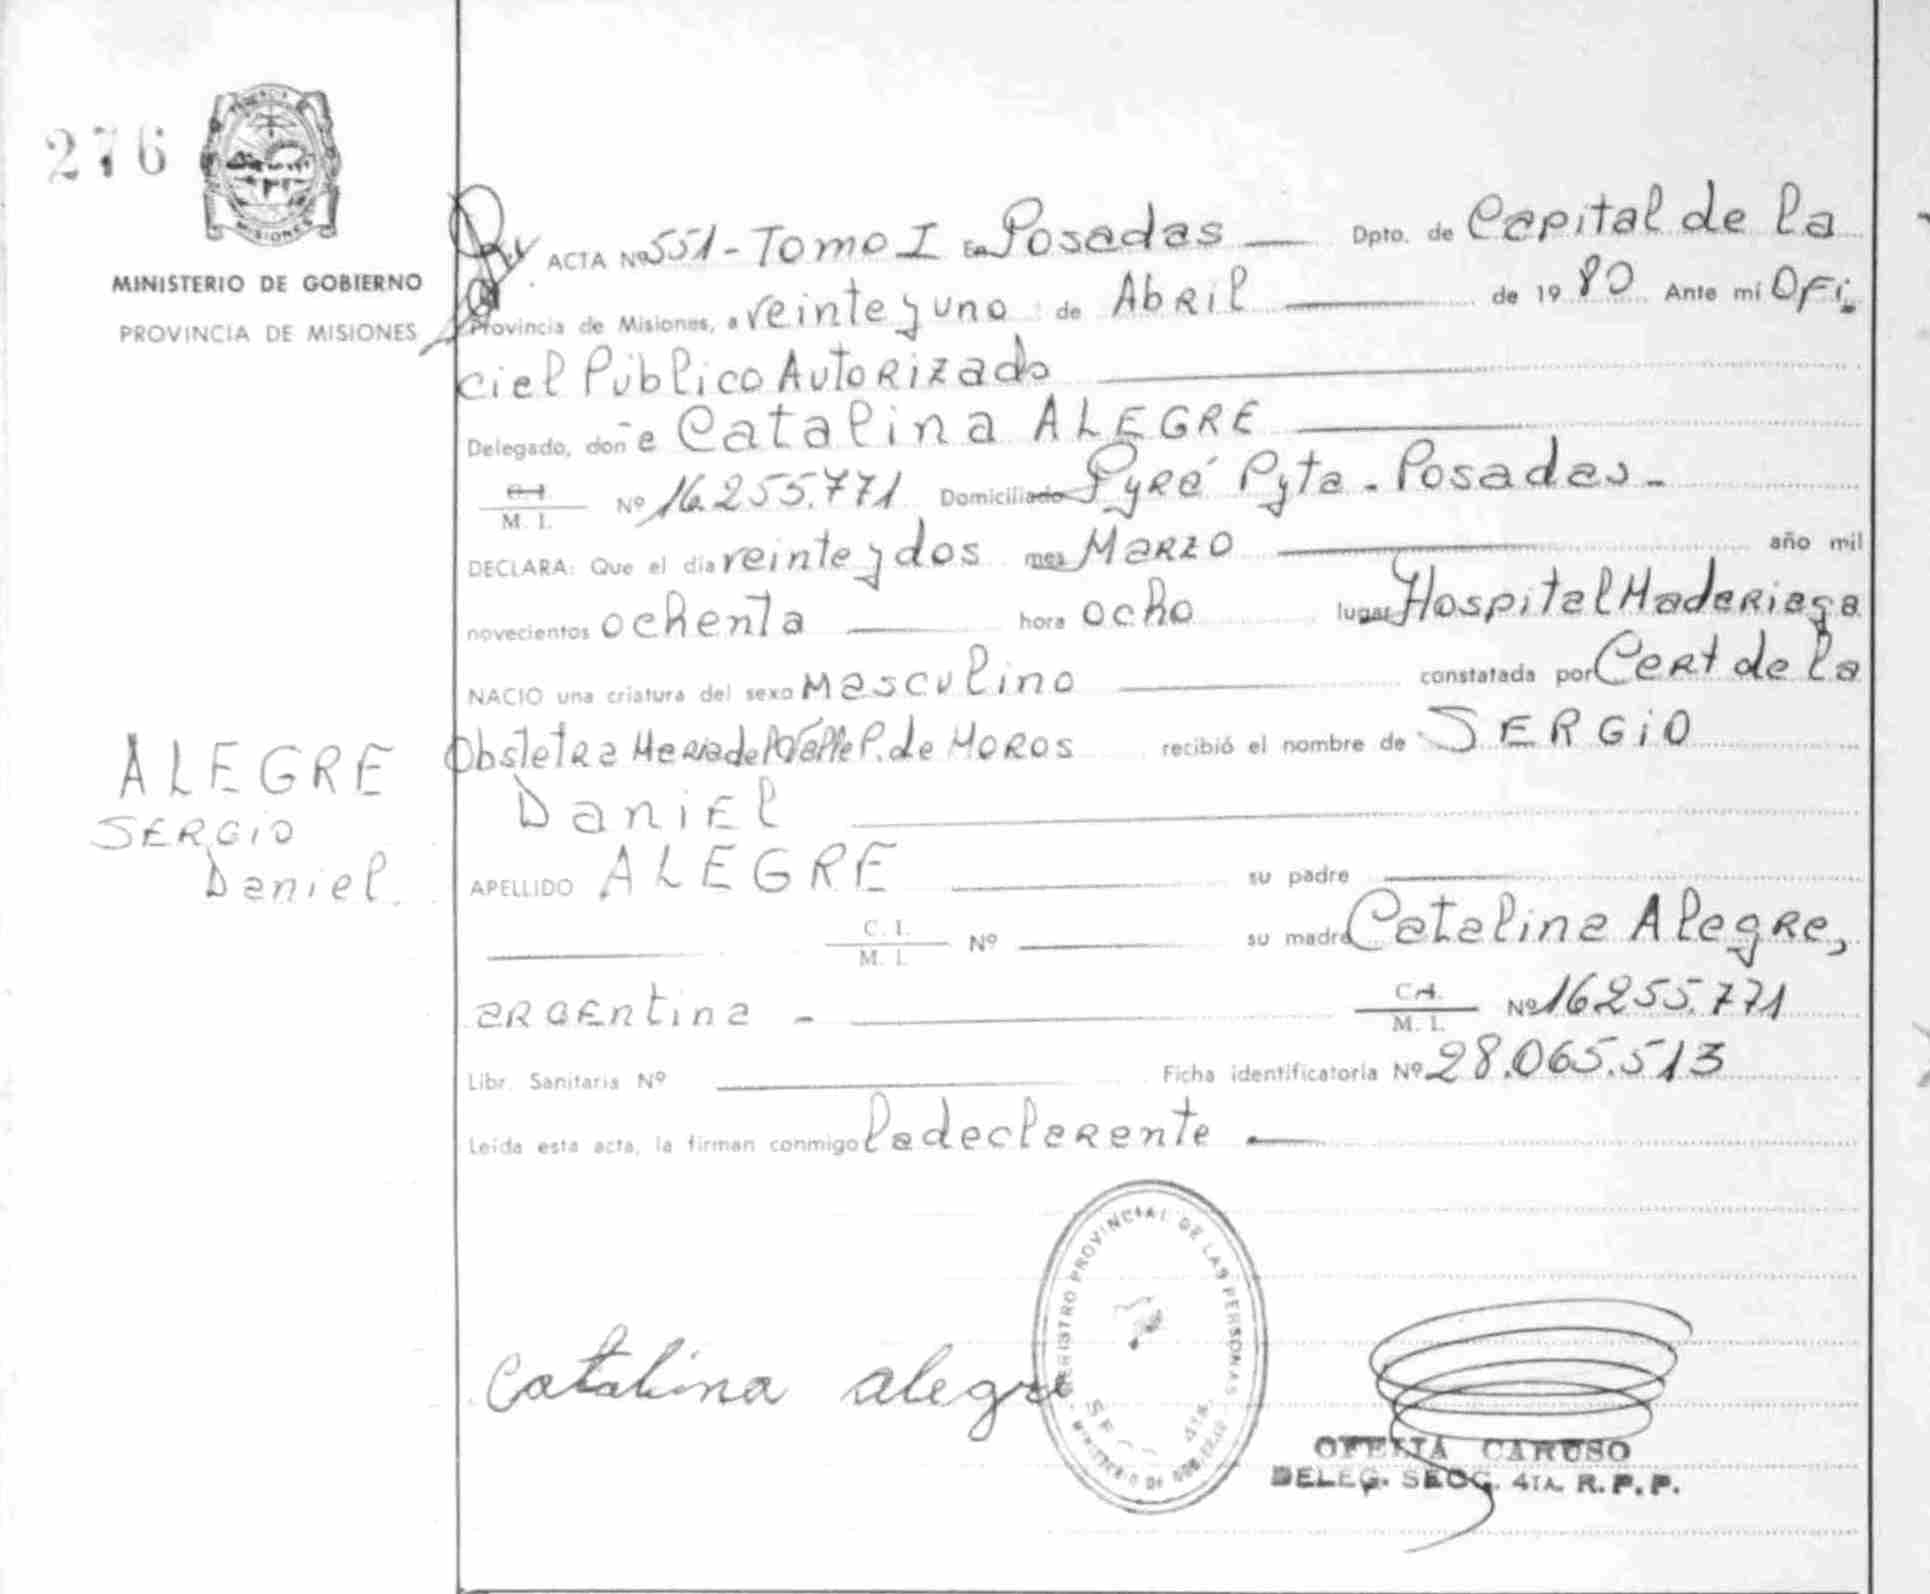 276
MISIONES
MINISTERIO DE GOBIERNO
PROVINCIA DE MISIONES
ACTA Nº 551 - Tomo I En Posadas Dpto. de Capital de la
Provincia de Misiones, a veinte y uno de Abril de 19 80 Ante mí Ofi-
cial Público Autorizado
Delegado, doñ a Catalina ALEGRE
C. I. / M. I. Nº 16.255.771 Domiciliado Pyré Pyta - Posadas -
DECLARA: Que el día veinte y dos mes Marzo año mil
novecientos ochenta hora ocho lugar Hospital Madariaga
NACIO una criatura del sexo Masculino constatada por Cert de la
Obstetra Maria del Valle P. de MOROS recibió el nombre de SERGiO
DaniEl
APELLIDO ALEGRE su padre
C. I. / M. I. Nº su madre Catalina Alegre,
argentina - C. I. / M. I. Nº 16255.771
Libr. Sanitaria Nº Ficha identificatoria Nº 28.065.513
Leída esta acta, la firman conmigo la declarente
ALEGRE
SERGiO
Daniel.
Catalina alegre
REGISTRO PROVINCIAL DE LAS PERSONAS
MINISTERIO DE GOBIERNO
OFELIA CARUSO
DELEG. SECC. 4TA. R. P. P.